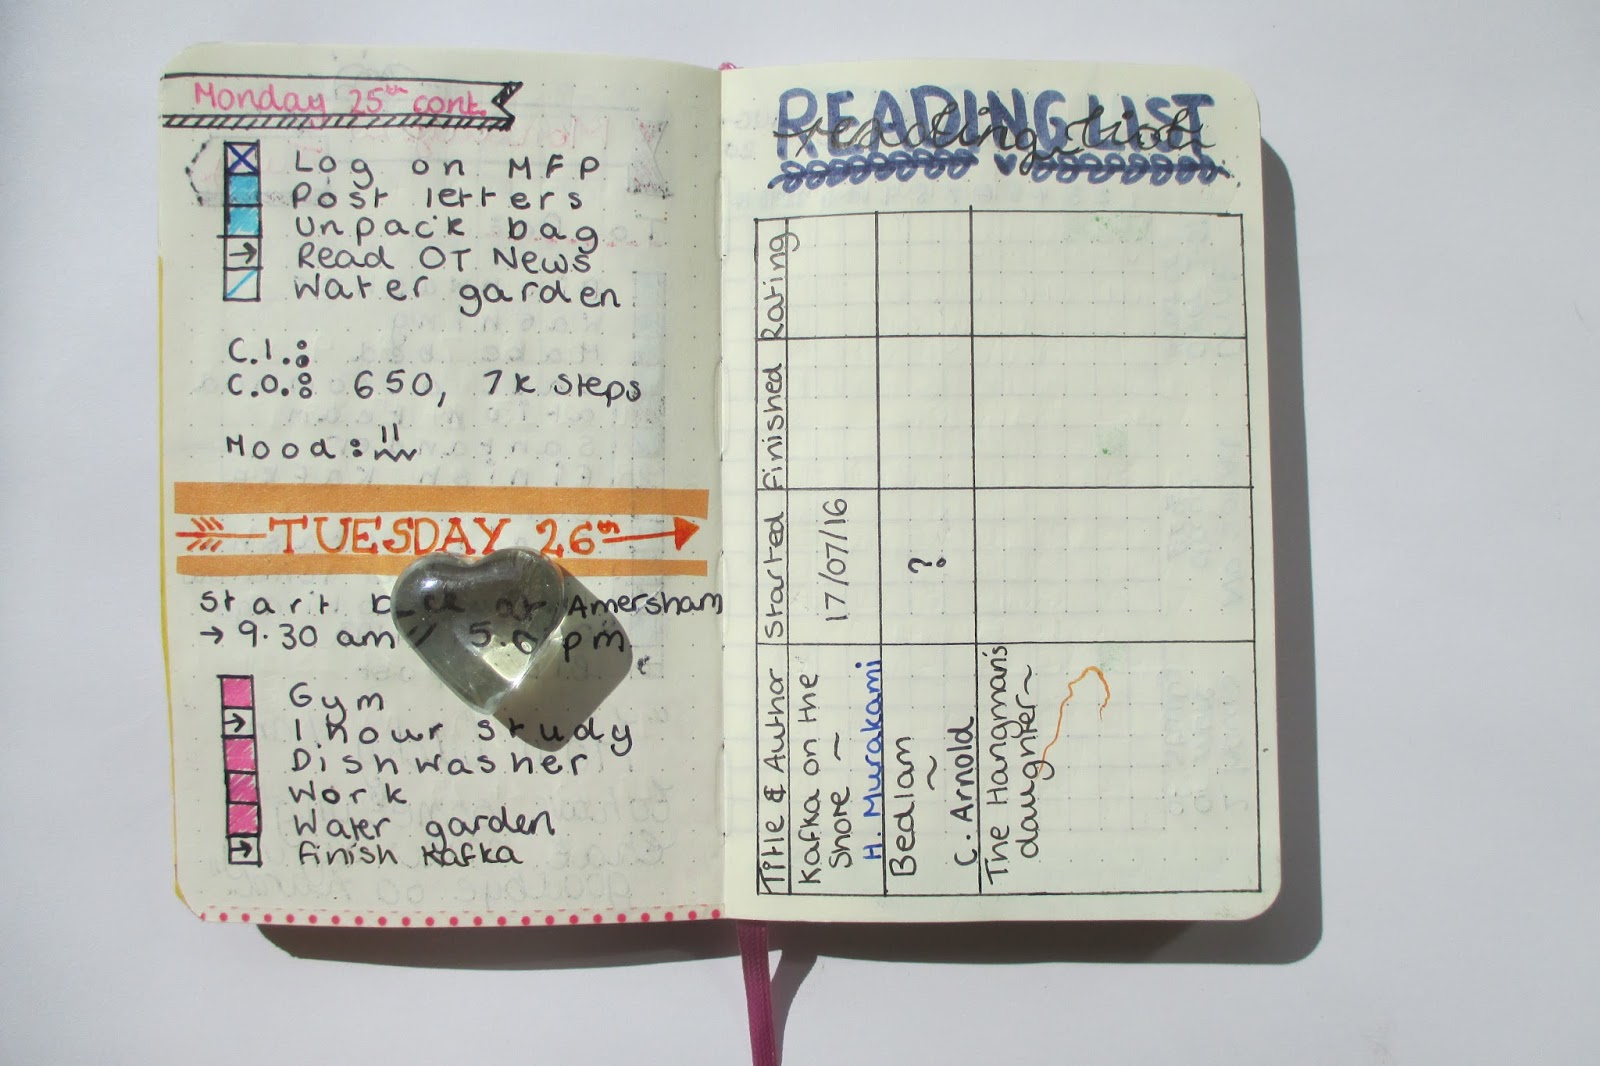 Monday 25th cont.
Log on MFP
Post letters
Unpack bag
Read OT News
Water garden
C.I.:
C.O.: 650, 7k steps
Mood:
TUESDAY 26th
Start back at Amersham
→ 9.30 am 5.0 pm
Gym
1 hour study
Dishwasher
Work
Water garden
Finish Kafka
READING LIST
reading list
Title & Author Started Finished Rating
Kafka on the
Shore ~
H. Murakami
17/07/16
Bedlam
~
C. Arnold
?
The Hangman's
daughter ~